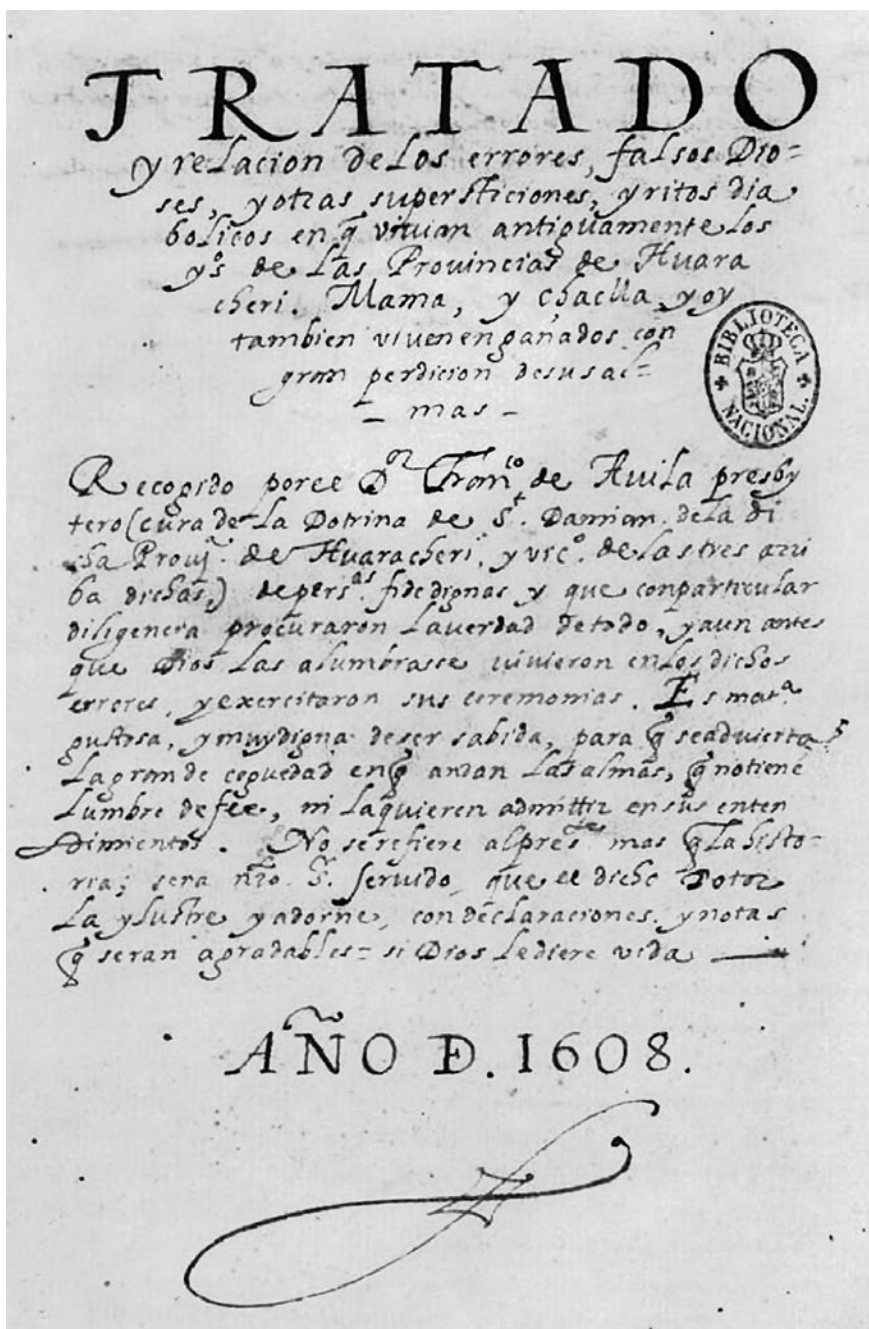 TRATADO
y relacion de los errores, falsos Dio=
ses, y otras supersticiones, y ritos dia
bolicos en q̃ viuian antiguamente los
yº.s de las Prouincias de Huara
cheri. Mama, y chaclla, y oy
tambien viuen engañados con
gran perdicion de sus al=
- mas -
BIBLIOTECA
NACIONAL.
Recogido por el D.or Fran.co de Auila presby
tero (cura de la Dotrina de S.t Damian. de la di
cha Prouj.a de Huaracheri, y vic.o de las tres arri
ba dichas,) de pers.as fidedignas y que con particular
diligencia procuraron la verdad de todo, y aun antes
que Dios las alumbrasse viuieron en los dichos
errores, y exercitaron sus ceremonias. Es mat.a
gustosa, y muy digna de ser sabida, para q̃ se aduierta
la grande ceguedad en q̃ andan las almas, q̃ no tienẽ
lumbre de fee, ni la quieren admittir en sus enten
dimientos. No se refiere al pres.te mas q̃ la histo-
ria; sera nr̃o S.r seruido, que el dicho Dotor
la ylustre y adorne, con declaraciones, y notas
q̃ seran agradables = si Dios le diere vida
AÑO D. 1608.